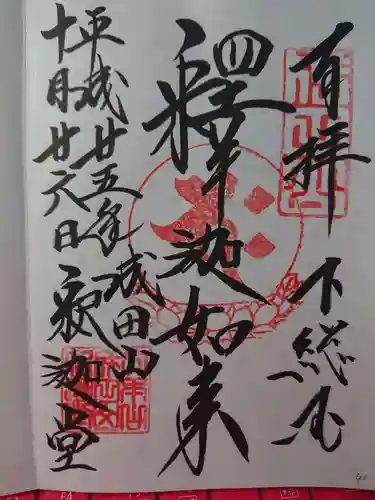 奉拝 下総国
釋迦如来
平成廿五年 成田山
十月廿六日 釈迦堂